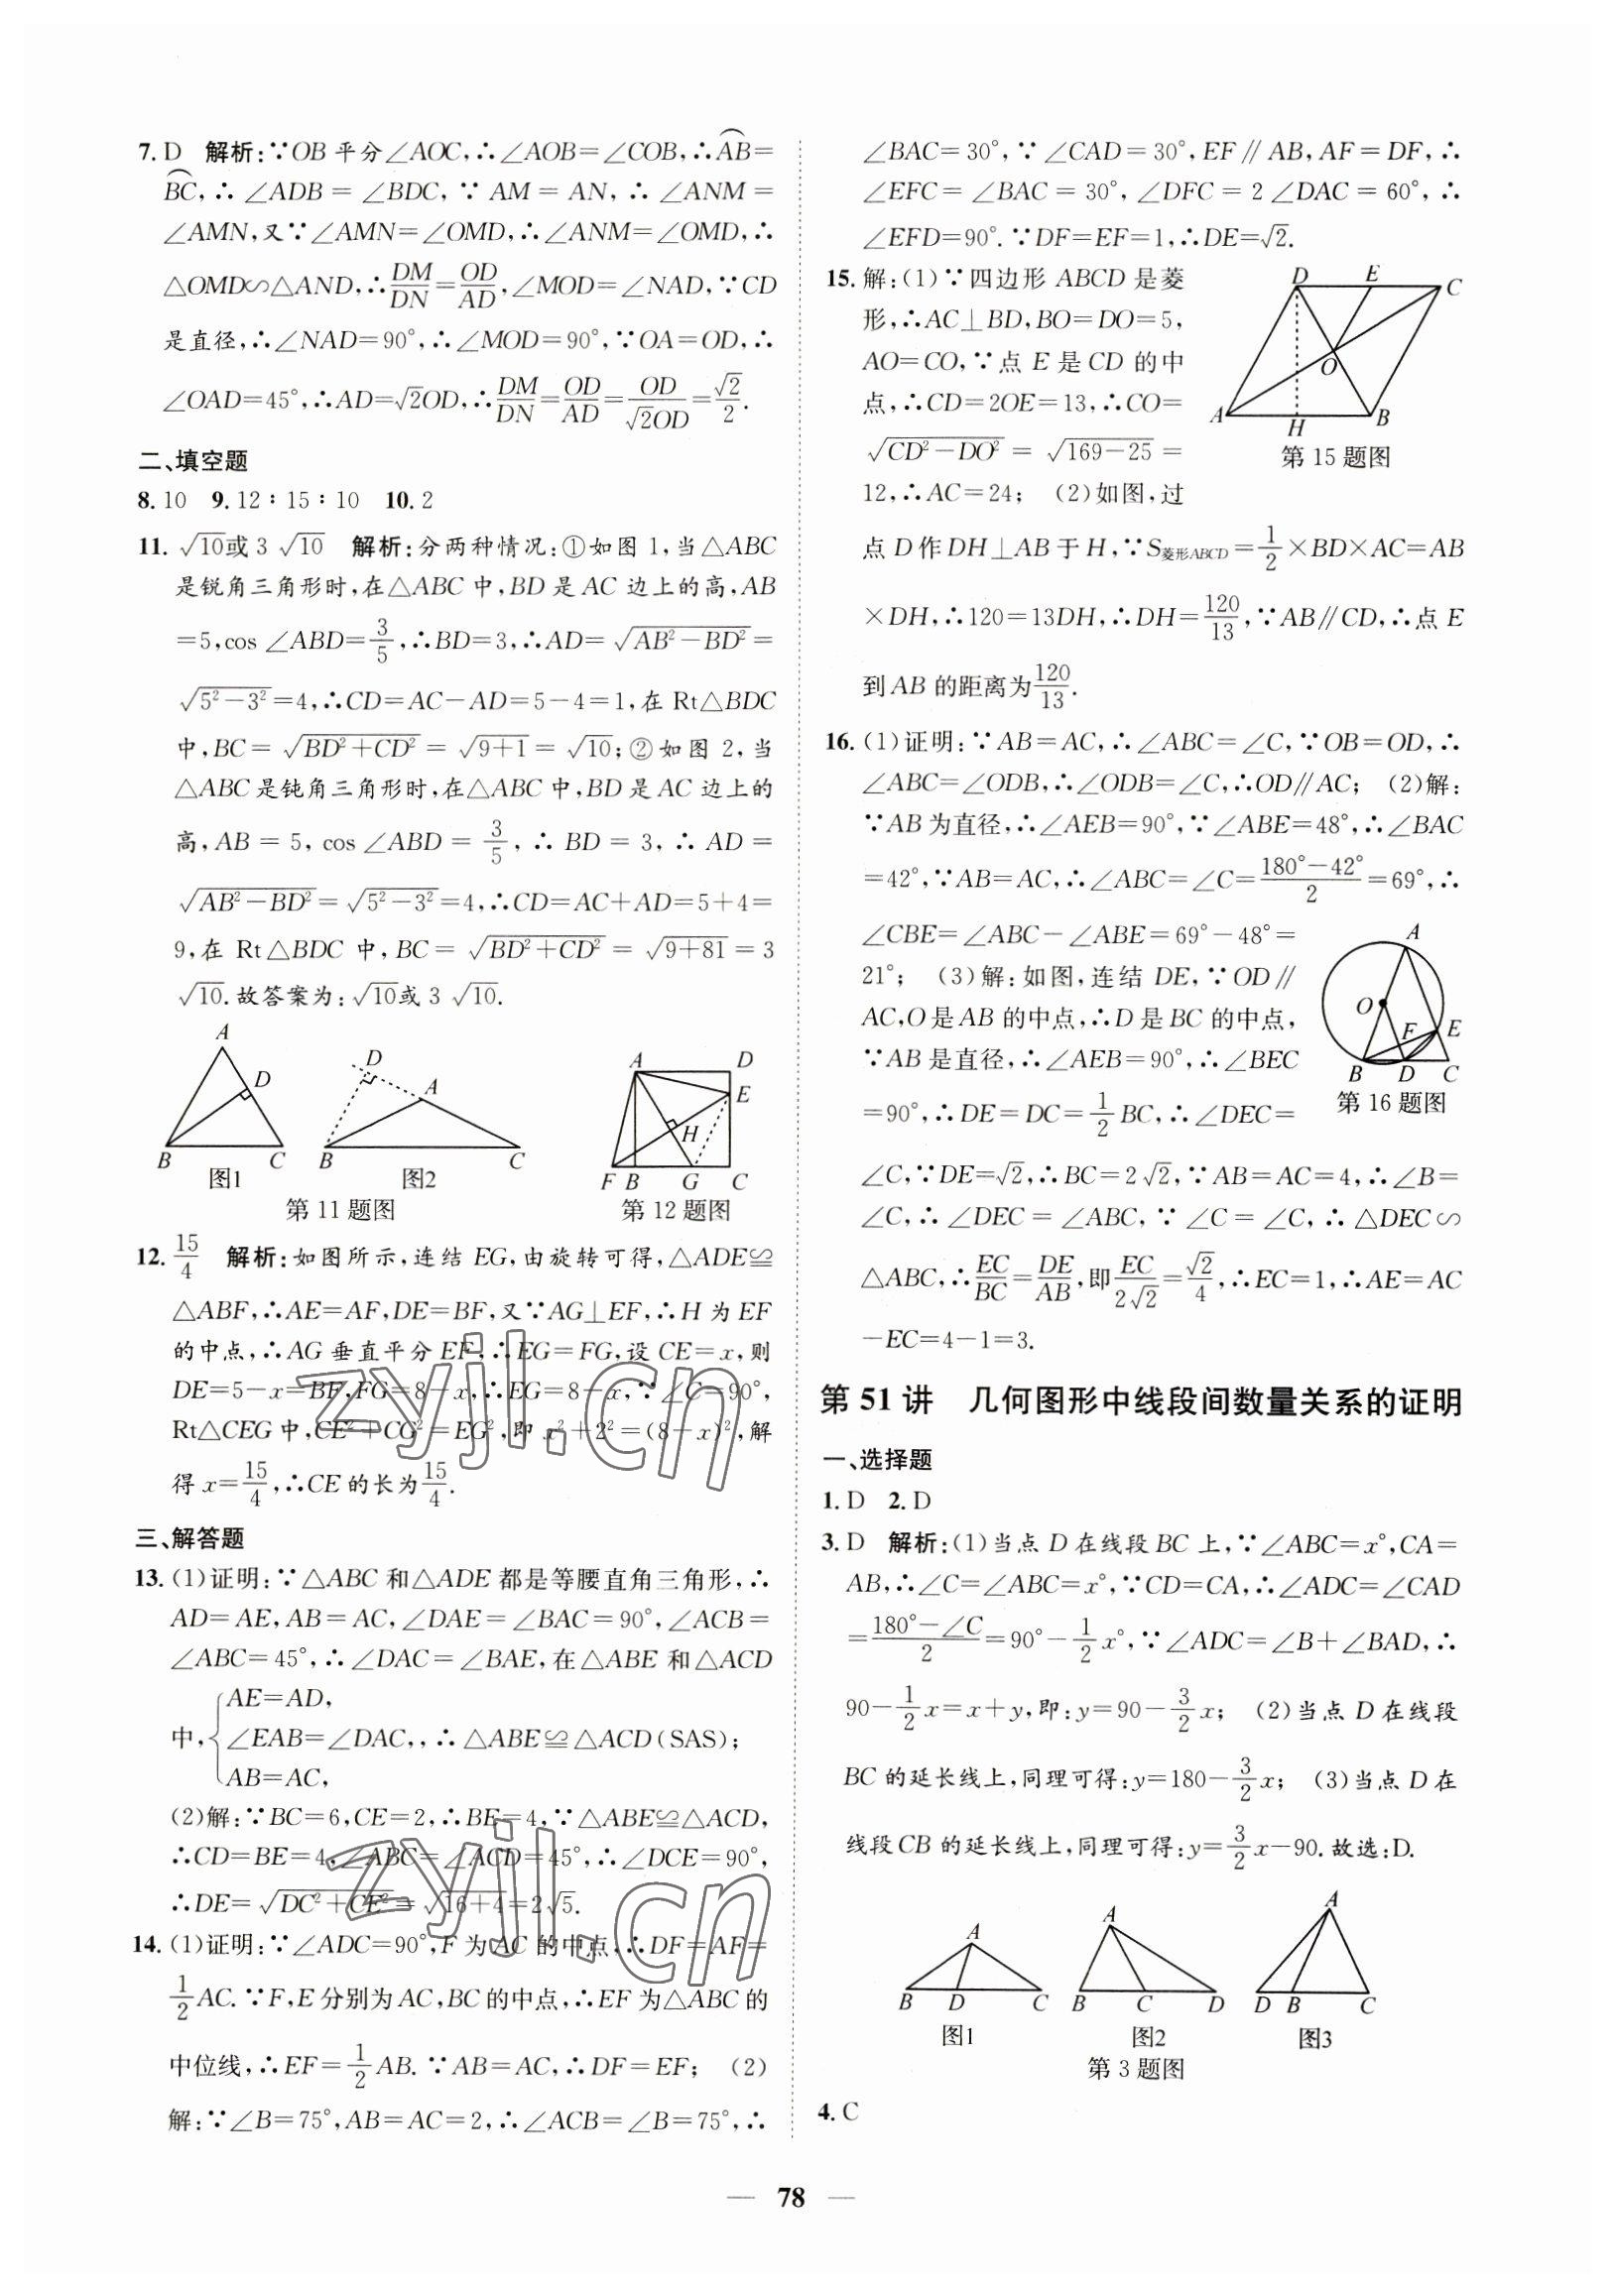 7. D 解析:∵OB平分∠AOC,∴∠AOB=∠COB,∴AB⌒=
BC⌒,∴∠ADB=∠BDC,∵AM=AN,∴∠ANM=
∠AMN,又∵∠AMN=∠OMD,∴∠ANM=∠OMD,∴
△OMD∽△AND,∴DM/DN=OD/AD,∠MOD=∠NAD,∵CD
是直径,∴∠NAD=90°,∴∠MOD=90°,∵OA=OD,∴
∠OAD=45°,∴AD=√2OD,∴DM/DN=OD/AD=OD/√2OD=√2/2.
二、填空题
8. 10 9. 12∶15∶10 10. 2
11. √10或3√10 解析:分两种情况:①如图1,当△ABC
是锐角三角形时,在△ABC中,BD是AC边上的高,AB
=5,cos∠ABD=3/5,∴BD=3,∴AD=√(AB²-BD²)=
√(5²-3²)=4,∴CD=AC-AD=5-4=1,在Rt△BDC
中,BC=√(BD²+CD²)=√(9+1)=√10;②如图2,当
△ABC是钝角三角形时,在△ABC中,BD是AC边上的
高,AB=5,cos∠ABD=3/5,∴BD=3,∴AD=
√(AB²-BD²)=√(5²-3²)=4,∴CD=AC+AD=5+4=
9,在Rt△BDC中,BC=√(BD²+CD²)=√(9+81)=3
√10.故答案为:√10或3√10.
A D B C 图1
D A B C 图2
第11题图
A D E H F B G C
第12题图
12. 15/4 解析:如图所示,连结EG,由旋转可得,△ADE≌
△ABF,∴AE=AF,DE=BF,又∵AG⊥EF,∴H为EF
的中点,∴AG垂直平分EF,∴EG=FG,设CE=x,则
DE=5-x=BF,FG=8-x,∴EG=8-x,∵∠C=90°,
Rt△CEG中,CE²+CG²=EG²,即x²+2²=(8-x)²,解
得x=15/4,∴CE的长为15/4.
三、解答题
13. (1)证明:∵△ABC和△ADE都是等腰直角三角形,∴
AD=AE,AB=AC,∠DAE=∠BAC=90°,∠ACB=
∠ABC=45°,∴∠DAC=∠BAE,在△ABE和△ACD
AE=AD,
中,{∠EAB=∠DAC,,∴△ABE≌△ACD(SAS);
AB=AC,
(2)解:∵BC=6,CE=2,∴BE=4,∵△ABE≌△ACD,
∴CD=BE=4,∠ABC=∠ACD=45°,∴∠DCE=90°,
∴DE=√(DC²+CE²)=√(16+4)=2√5.
14. (1)证明:∵∠ADC=90°,F为AC的中点,∴DF=AF=
1/2AC.∵F,E分别为AC,BC的中点,∴EF为△ABC的
中位线,∴EF=1/2AB.∵AB=AC,∴DF=EF; (2)
解:∵∠B=75°,AB=AC=2,∴∠ACB=∠B=75°,∴
∠BAC=30°,∵∠CAD=30°,EF∥AB,AF=DF,∴
∠EFC=∠BAC=30°,∠DFC=2∠DAC=60°,∴
∠EFD=90°.∵DF=EF=1,∴DE=√2.
15. 解:(1)∵四边形ABCD是菱
形,∴AC⊥BD,BO=DO=5,
AO=CO,∵点E是CD的中
点,∴CD=2OE=13,∴CO=
√(CD²-DO²)=√(169-25)=
12,∴AC=24; (2)如图,过
D E C O A H B
第15题图
点D作DH⊥AB于H,∵S菱形ABCD=1/2×BD×AC=AB
×DH,∴120=13DH,∴DH=120/13,∵AB∥CD,∴点E
到AB的距离为120/13.
16. (1)证明:∵AB=AC,∴∠ABC=∠C,∵OB=OD,∴
∠ABC=∠ODB,∴∠ODB=∠C,∴OD∥AC; (2)解:
∵AB为直径,∴∠AEB=90°,∵∠ABE=48°,∴∠BAC
=42°,∵AB=AC,∴∠ABC=∠C=(180°-42°)/2=69°,∴
∠CBE=∠ABC-∠ABE=69°-48°=
21°; (3)解:如图,连结DE,∵OD∥
AC,O是AB的中点,∴D是BC的中点,
∵AB是直径,∴∠AEB=90°,∴∠BEC
=90°,∴DE=DC=1/2BC,∴∠DEC=
A O F E B D C
第16题图
∠C,∵DE=√2,∴BC=2√2,∵AB=AC=4,∴∠B=
∠C,∴∠DEC=∠ABC,∵∠C=∠C,∴△DEC∽
△ABC,∴EC/BC=DE/AB,即EC/2√2=√2/4,∴EC=1,∴AE=AC
-EC=4-1=3.
第51讲 几何图形中线段间数量关系的证明
一、选择题
1. D 2. D
3. D 解析:(1)当点D在线段BC上,∵∠ABC=x°,CA=
AB,∴∠C=∠ABC=x°,∵CD=CA,∴∠ADC=∠CAD
=(180°-∠C)/2=90°-1/2x°,∵∠ADC=∠B+∠BAD,∴
90-1/2x=x+y,即:y=90-3/2x; (2)当点D在线段
BC的延长线上,同理可得:y=180-3/2x; (3)当点D在
线段CB的延长线上,同理可得:y=3/2x-90.故选:D.
A B D C 图1
A B C D 图2
A D B C 图3
第3题图
4. C
— 78 —
zyjl.cn
zyjl.cn